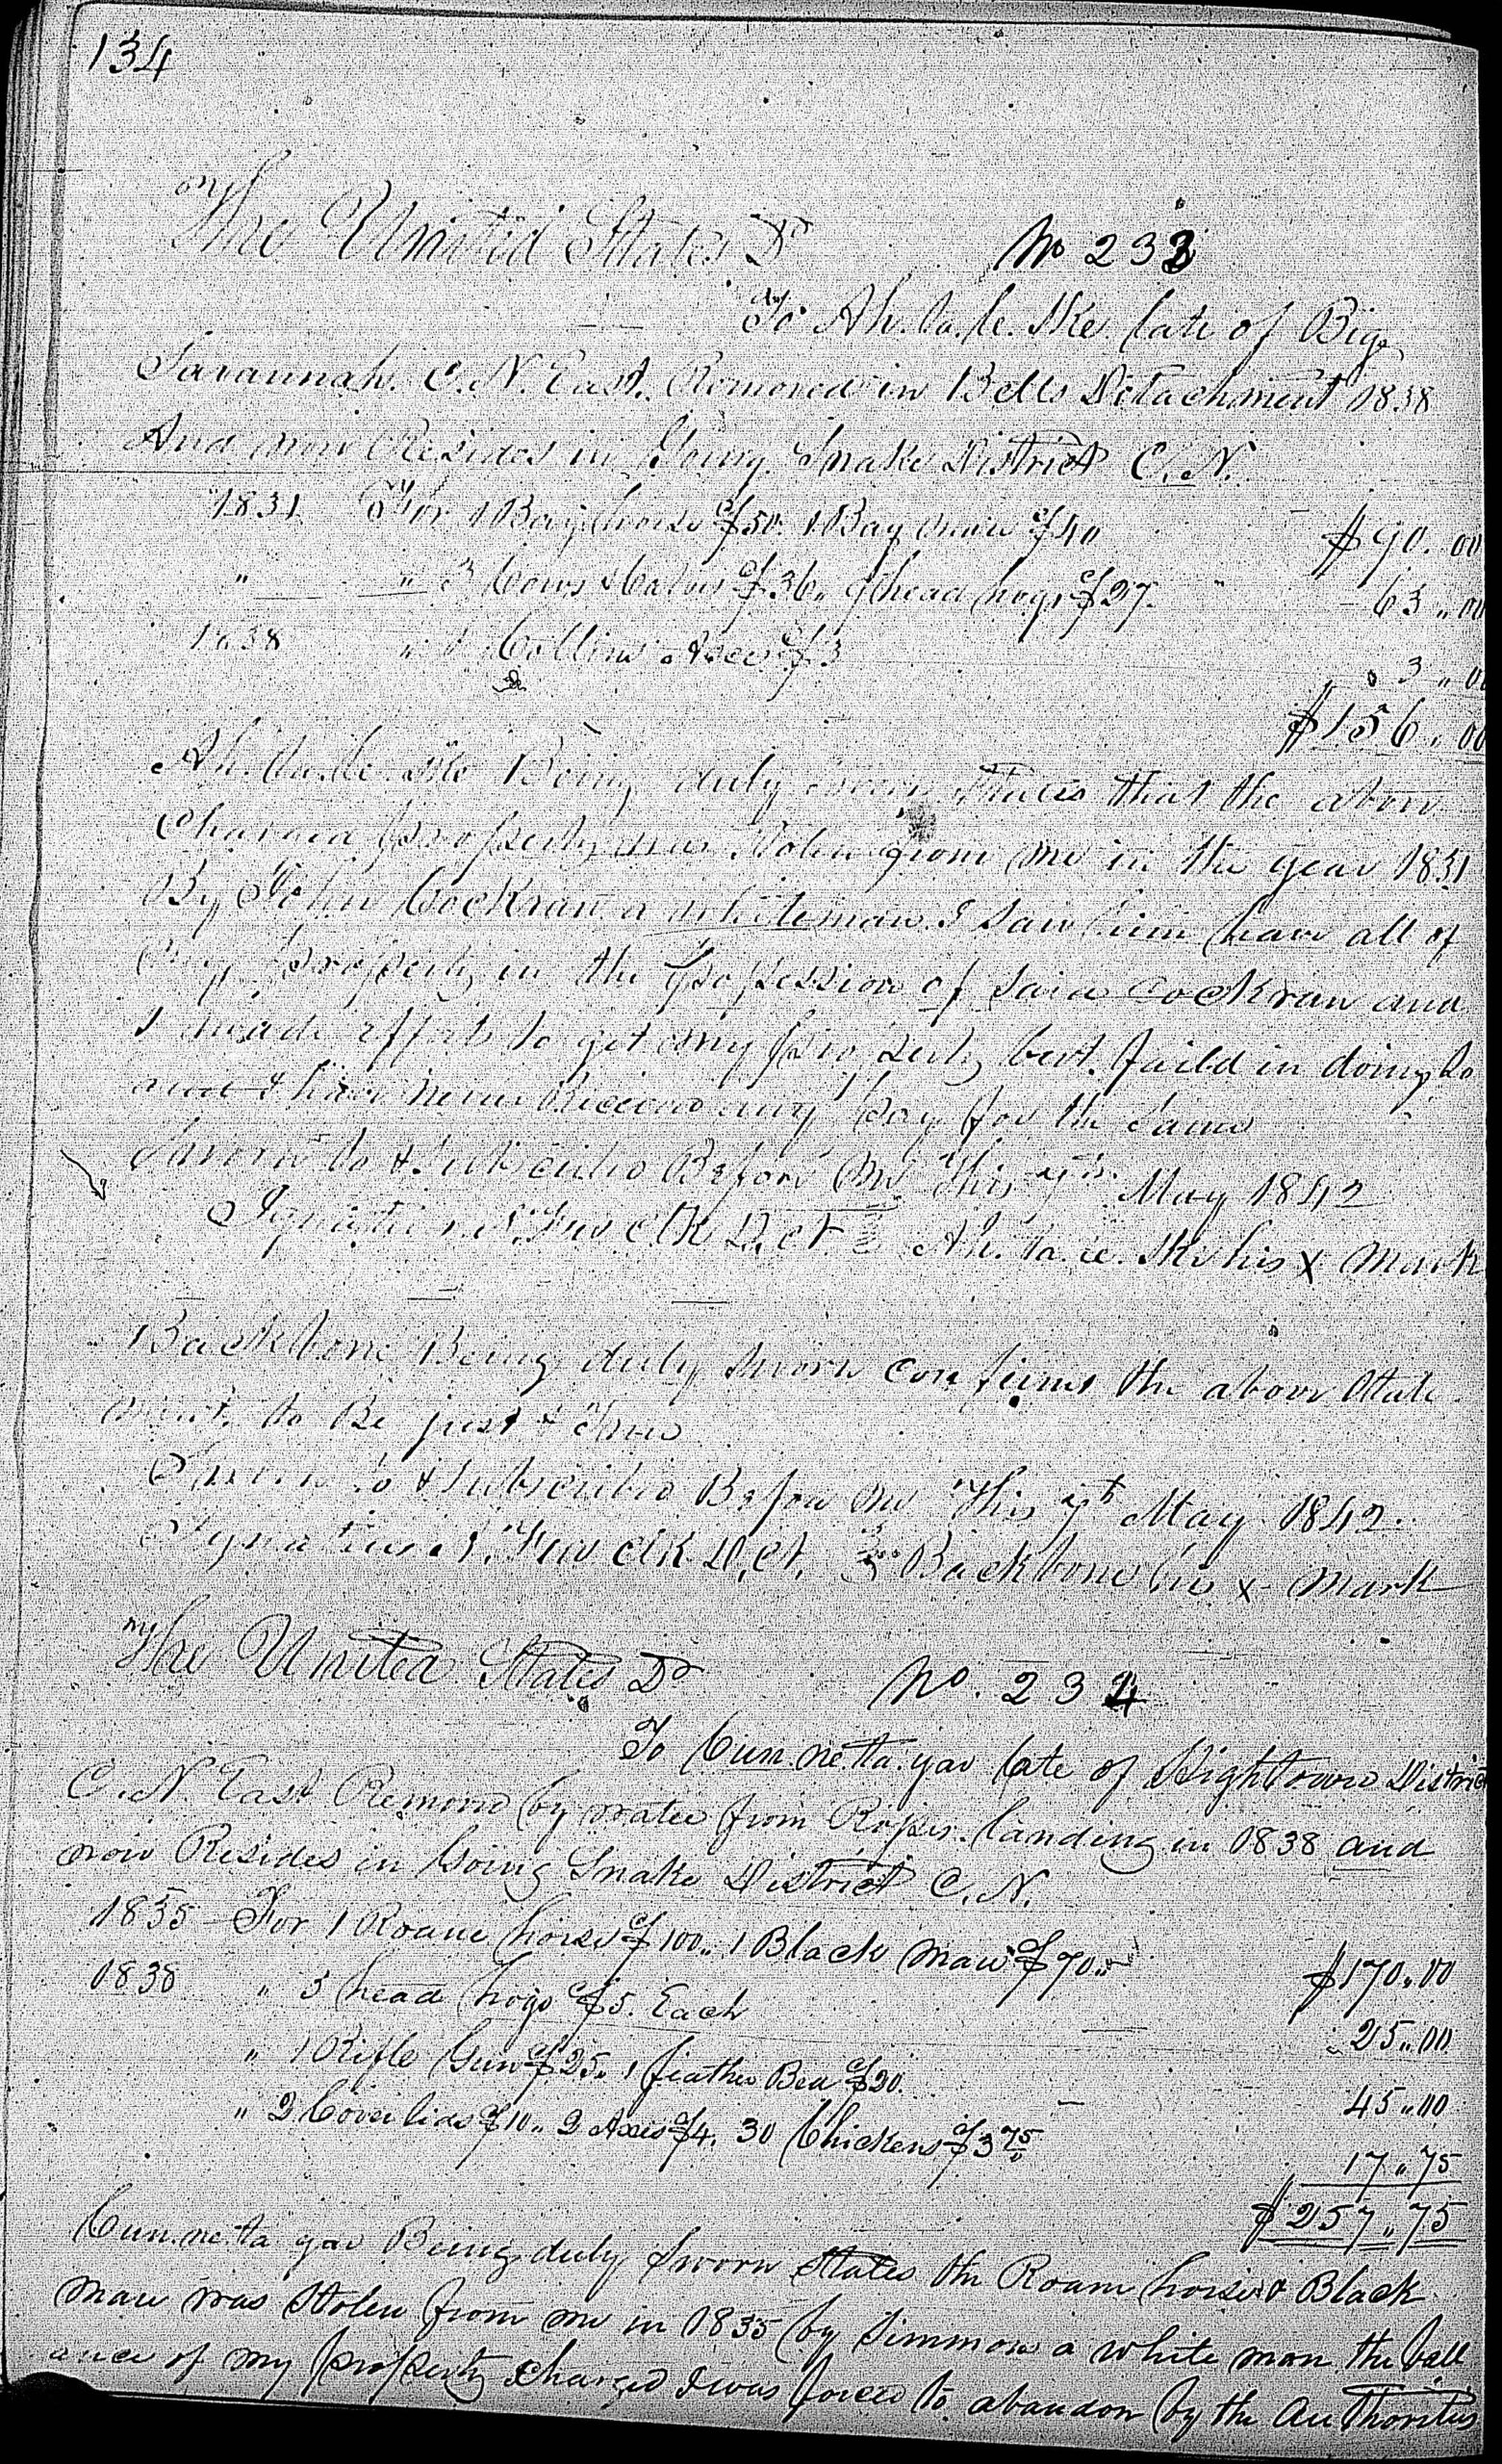 134
The United States Dr No 233
To Ah. ta. le. ske late of Big
Savannah. C. N. East. Removed in Bells Detachment 1838
And now Resides in Going Snake District C. N.
1831 For 1 Bay horse $50. 1 Bay mare $40 $90.00
" " 3 Cows & Calves $36, 9 head hogs $27. 63,,00
1838 " 1 Collins Axe $3 3,,00
$156,,00
Being duly sworn States that the above
Charged property was Stolen from me in the year 1831
By John Cockran a white man. I saw him have all of
my property in the possession of said Cockran and
I made efforts to get my property but faild in doing so
and I have never Received any Pay for the same
Sworn to & subscribed Before Me This 7th May 1842
Clk D. Ct. his X mark
Backbone Being duly sworn confirms the above State
ment to Be just & True
Sworn to & subscribed Before Me This 7th May 1842.
Clk D. Ct. Backbone his x mark
The United States Dr No. 234
To Cun. ne. ta. yav late of Hightown District
C. N. East Removd by water from Rosses landing in 1838 and
now Resides in Going Snake District C. N.
1835 For 1 Roane horse $100,, 1 Black Mare $70,, $170,,00
1838 " 5 head hogs $5. Each 25,,00
" 1 Rifle Gun $25, 1 feather Bed $20. 45,,00
" 2 Coverlids $10,, 2 Axes $4, 30 Chickens $3 75 17,,75
$257,,75
Cun. ne. ta yav Being duly Sworn States the Roane horse & Black
Mare was Stolen from me in 1835 by Simmons a white man. the ball
ance of my property charged I was forced to abandon by the Authorites